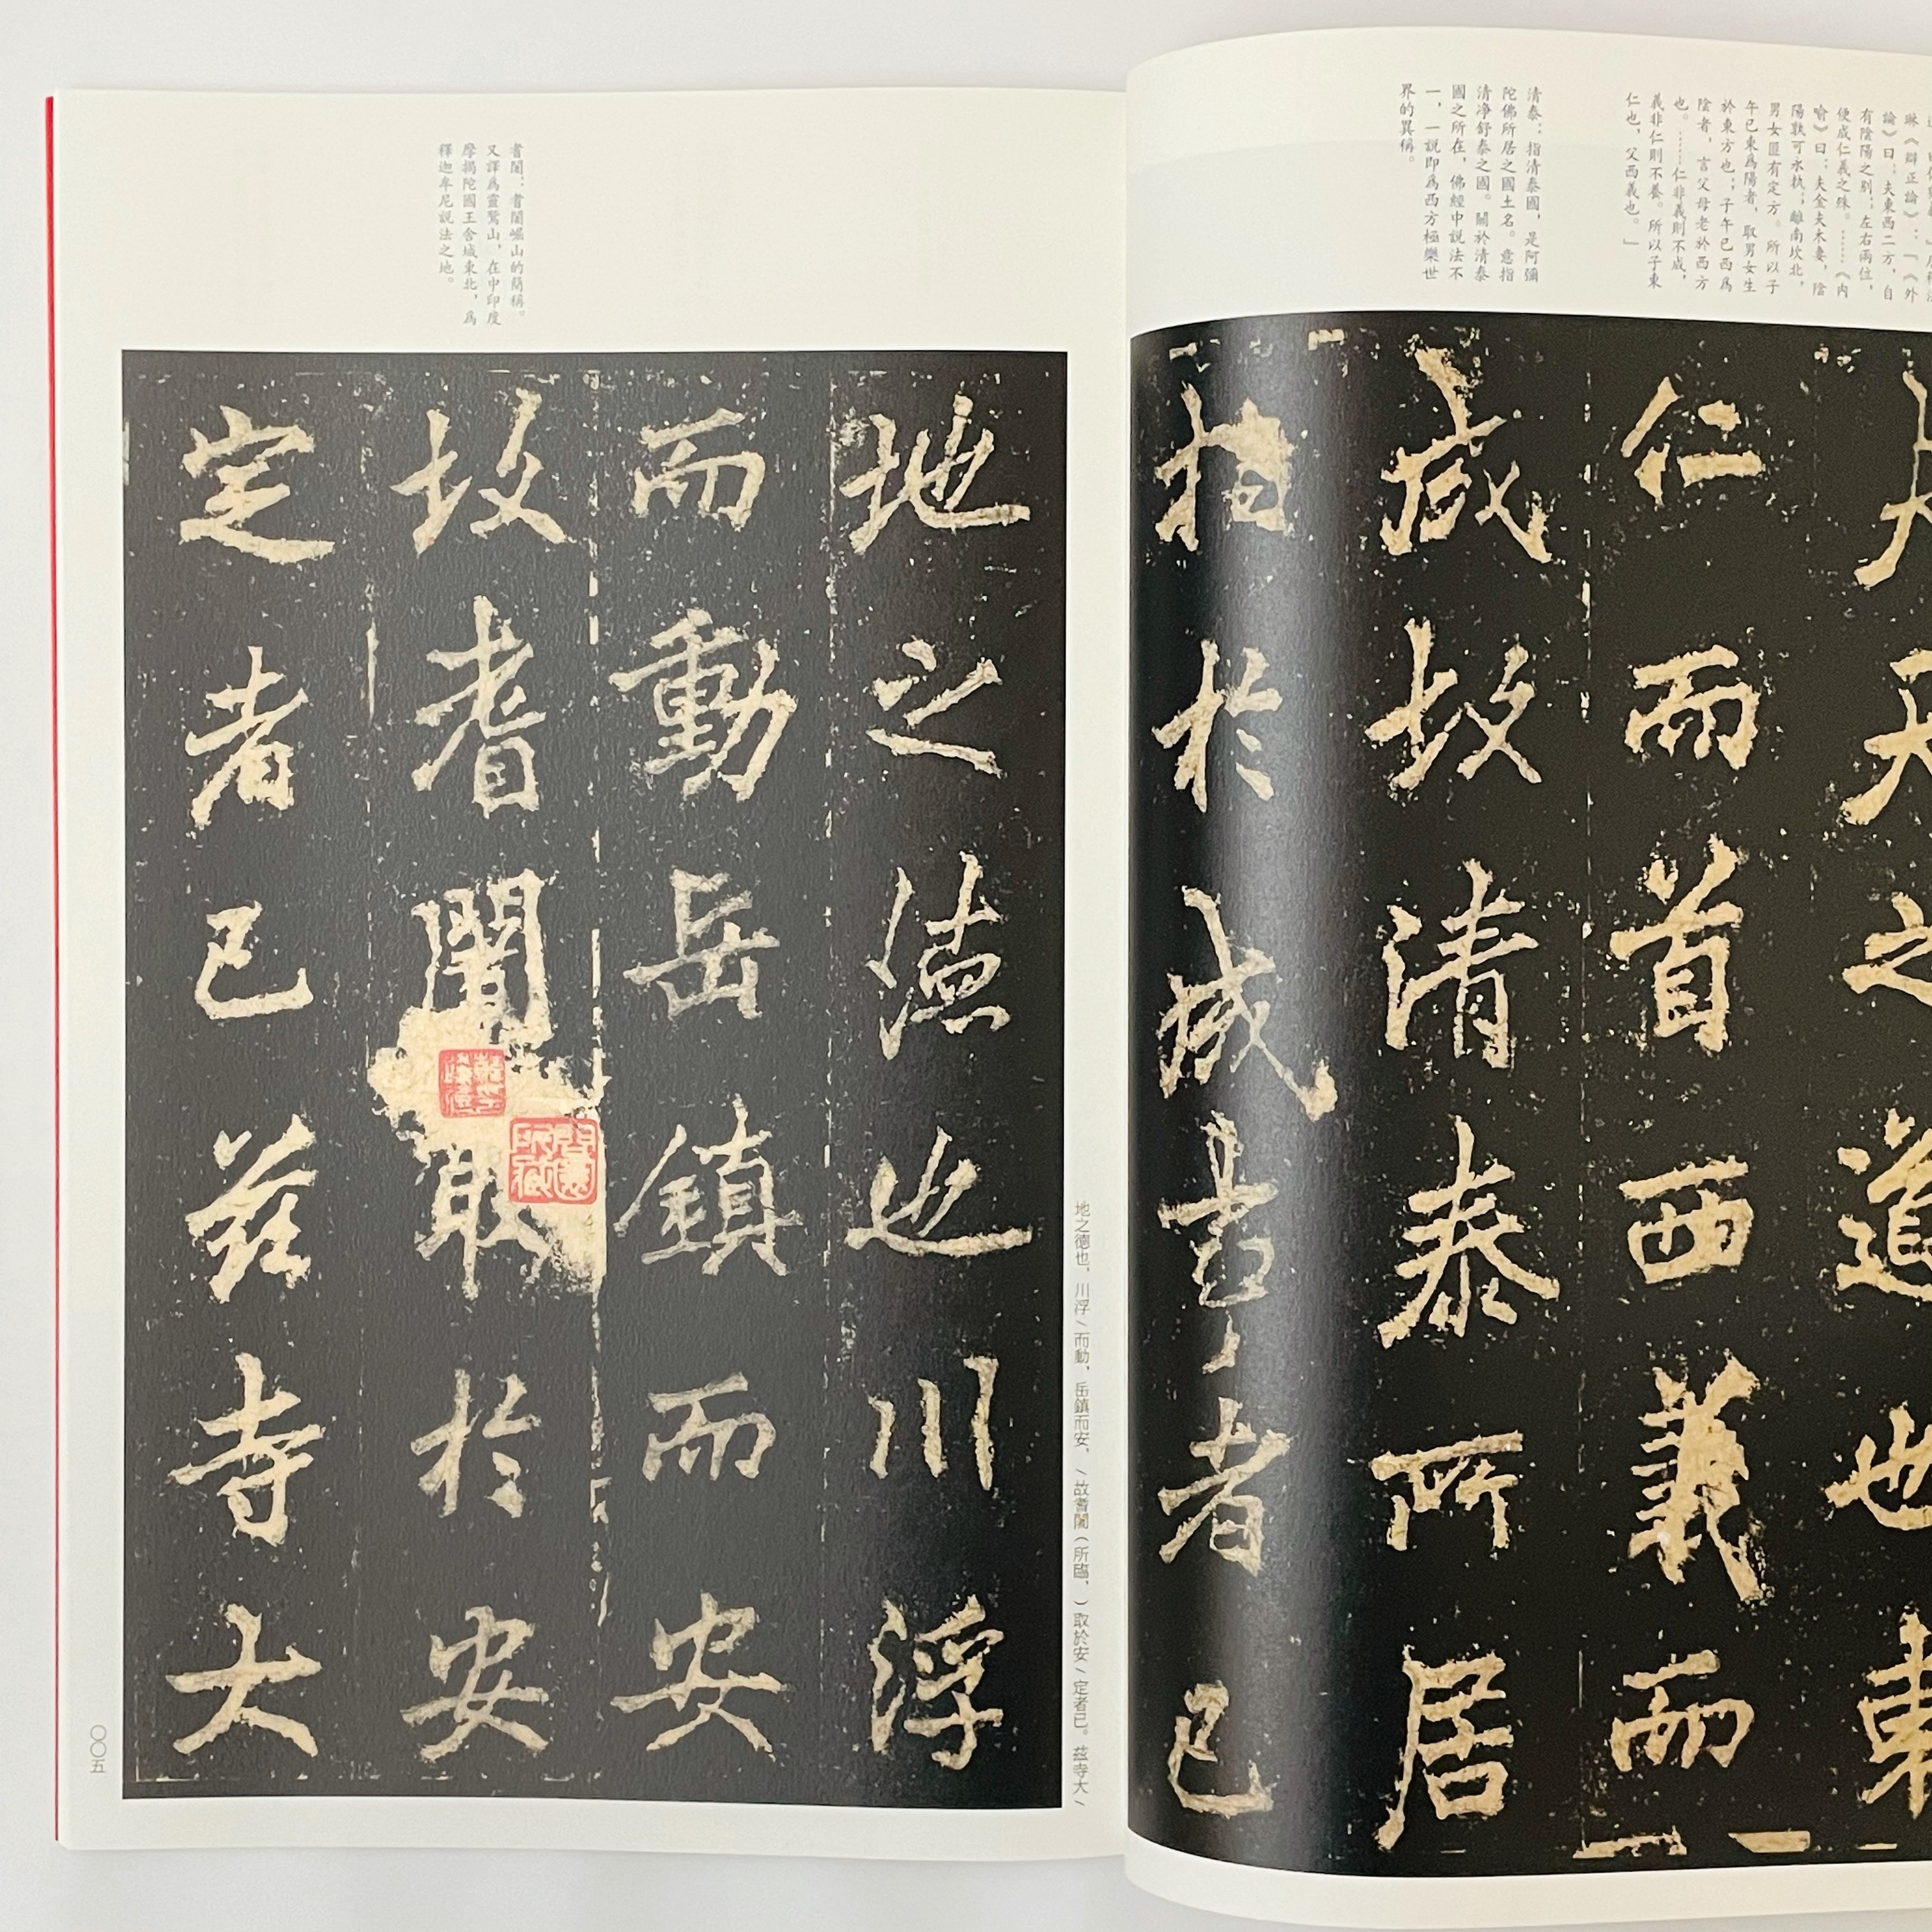 琳《辯正論》：「《外
論》曰：夫東西二方，自
有陰陽之别；左右兩位，
便成仁義之殊。……《内
喻》曰：夫金夫木妻，陰
陽孰可永執；離南坎北，
男女匪有定方。所以子
午已東爲陽者，取男女生
於東方也；子午已西爲
陰者，言父母老於西方
也。……仁非義則不成，
義非仁則不養。所以子東
仁也，父西義也。」
清泰：指清泰國，是阿彌
陀佛所居之國土名。意指
清净舒泰之國。關於清泰
國之所在，佛經中説法不
一，一説即爲西方極樂世
界的異稱。
天之道也東
仁而首西義而
成故清泰所居
指於成事者已
耆闍：耆闍崛山的簡稱。
又譯爲靈鷲山，在中印度
摩揭陀國王舍城東北，爲
釋迦牟尼説法之地。
地之德也，川浮/而動，岳鎮而安，/故耆闍（所臨，）取於安/定者已。兹寺大/
地之德也川浮
而動岳鎮而安
故耆闍取於安
定者已兹寺大
〇〇五